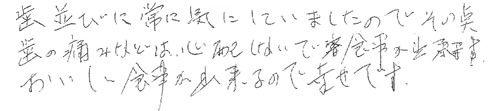 歯並びに常に気にしていましたのでその点
歯の痛みなどは、心配しないで食事が出来ます
おいしい食事が出来るので幸せです。